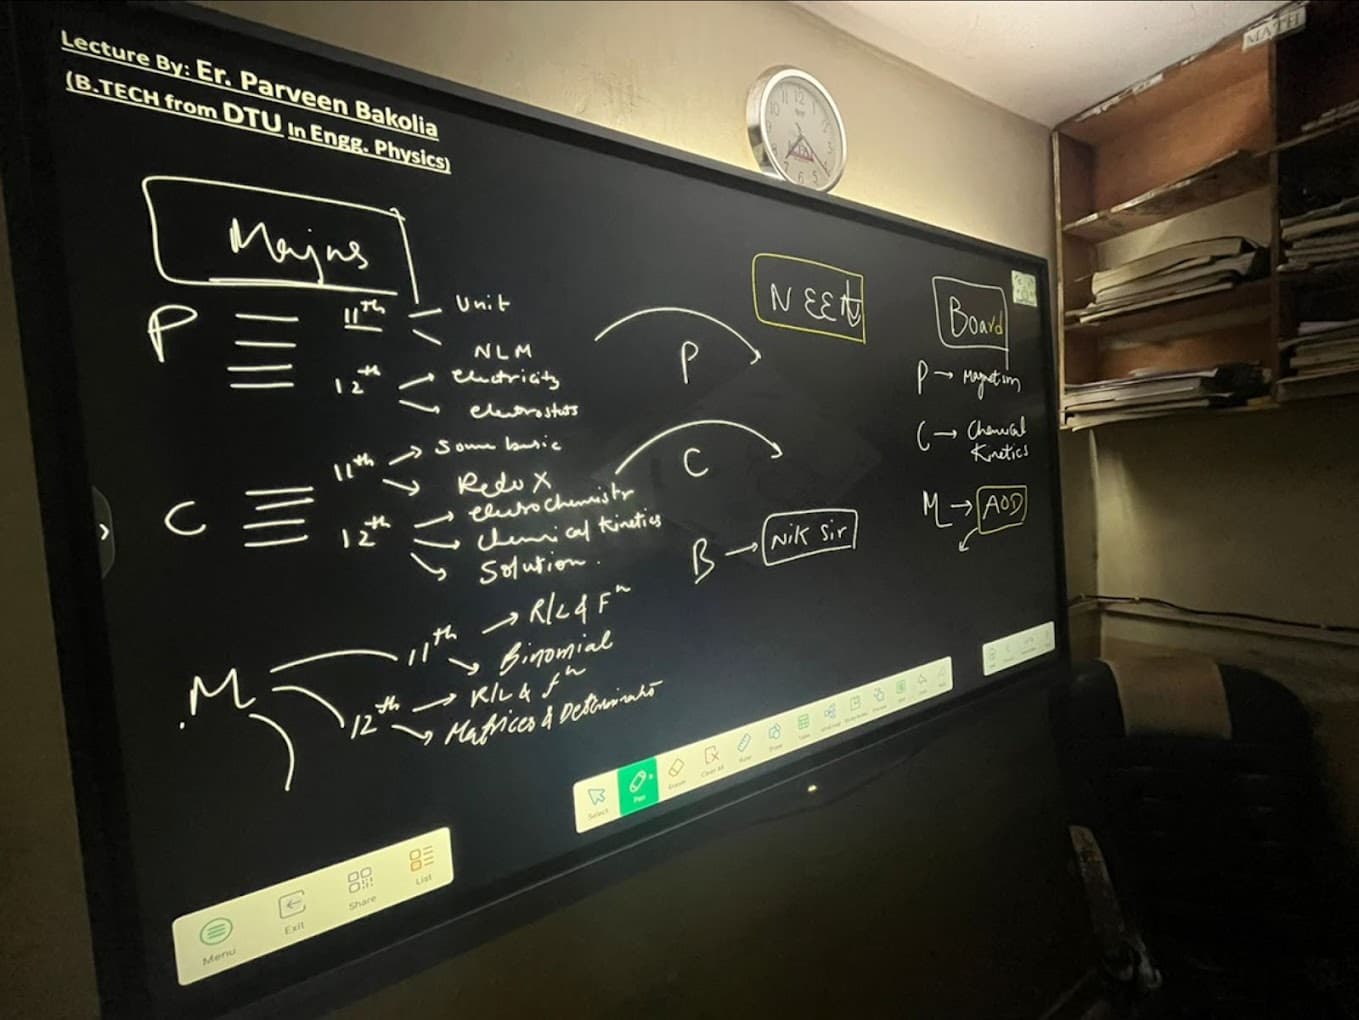 Lecture By: Er. Parveen Bakolia
(B.TECH from DTU In Engg. Physics)
Mains
P
11th
Unit
NLM
12th
electricity
C
11th
Some basic
Redox
12th
electrochemistr
Chemical Kinetics
Solution.
M
11th
R/L & Fn
Binomial
12th
R/L & fn
Matrices & Determinats
NEET
P
C
B → Nik Sir
Board
P → Magnetism
C → Chemical
Kinetics
M → AOD
Select
Pen
Eraser
Clear All
Menu
Exit
Share
List
MATH
12
1
2
3
4
5
6
7
8
10
11